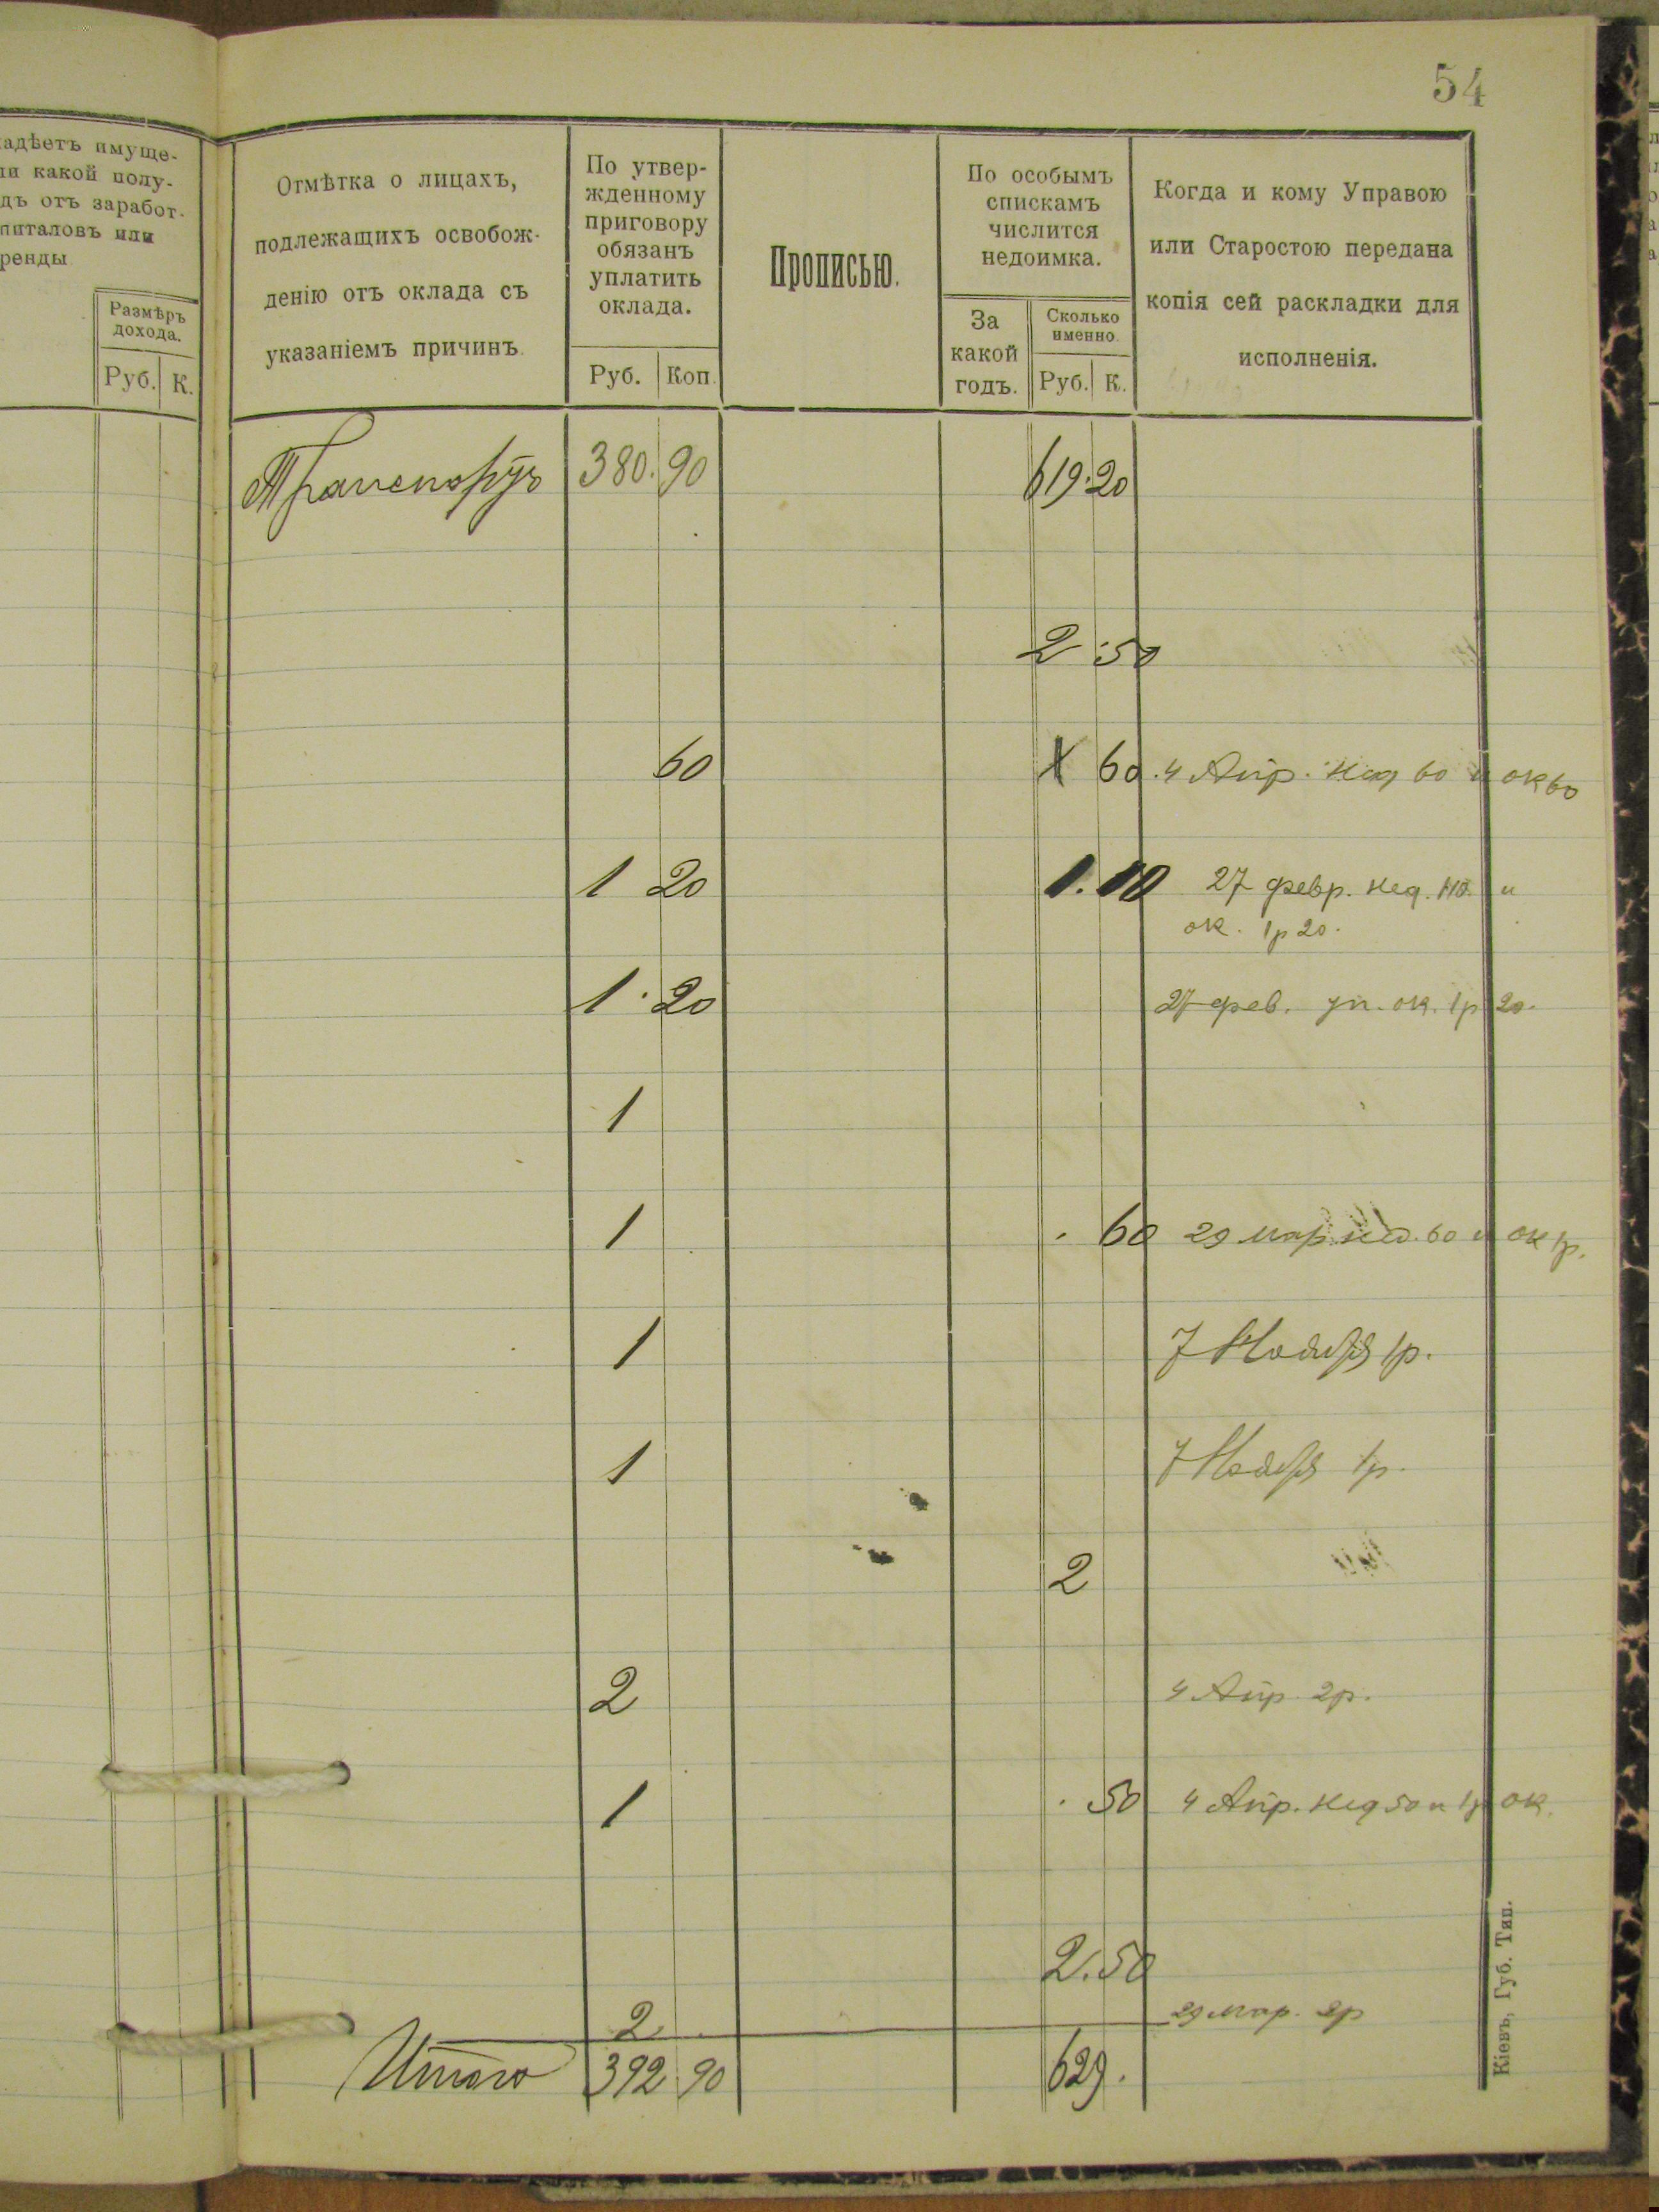 54
адѣетъ имуще-
ли какой полу-
дъ отъ заработ.
питаловъ или
ренды
Размѣръ
дохода.
Руб. К.
Отмѣтка о лицахъ,
подлежащихъ освобож-
денію отъ оклада съ
указаніемъ причинъ.
По утвер-
жденному
приговору
обязанъ
уплатить
оклада.
Руб. Коп.
Прописью.
По особымъ
спискамъ
числится
недоимка.
За
какой
годъ.
Сколько
именно.
Руб. К.
Когда и кому Управою
или Старостою передана
копія сей раскладки для
исполненія.
Транспортъ 380. 90 619. 20
2 50
60 60 4 Апр. нед 60 и ок 60
1 20 1. 10 27 февр. нед. 110 и
ок. 1р 20.
1. 20 27 фев. уп. ок. 1р 20.
1
1 60 29 мар нед. 60 и ок 1р.
1 7 Ноября 1р.
1 7 Ноября 1р.
2
2 4 Апр 2р.
1 50 4 Апр. нед 50 и 1р ок.
2. 50
2 29 мар. 2р
Итого 392 90 629.
Кіевъ, Губ. Тип.